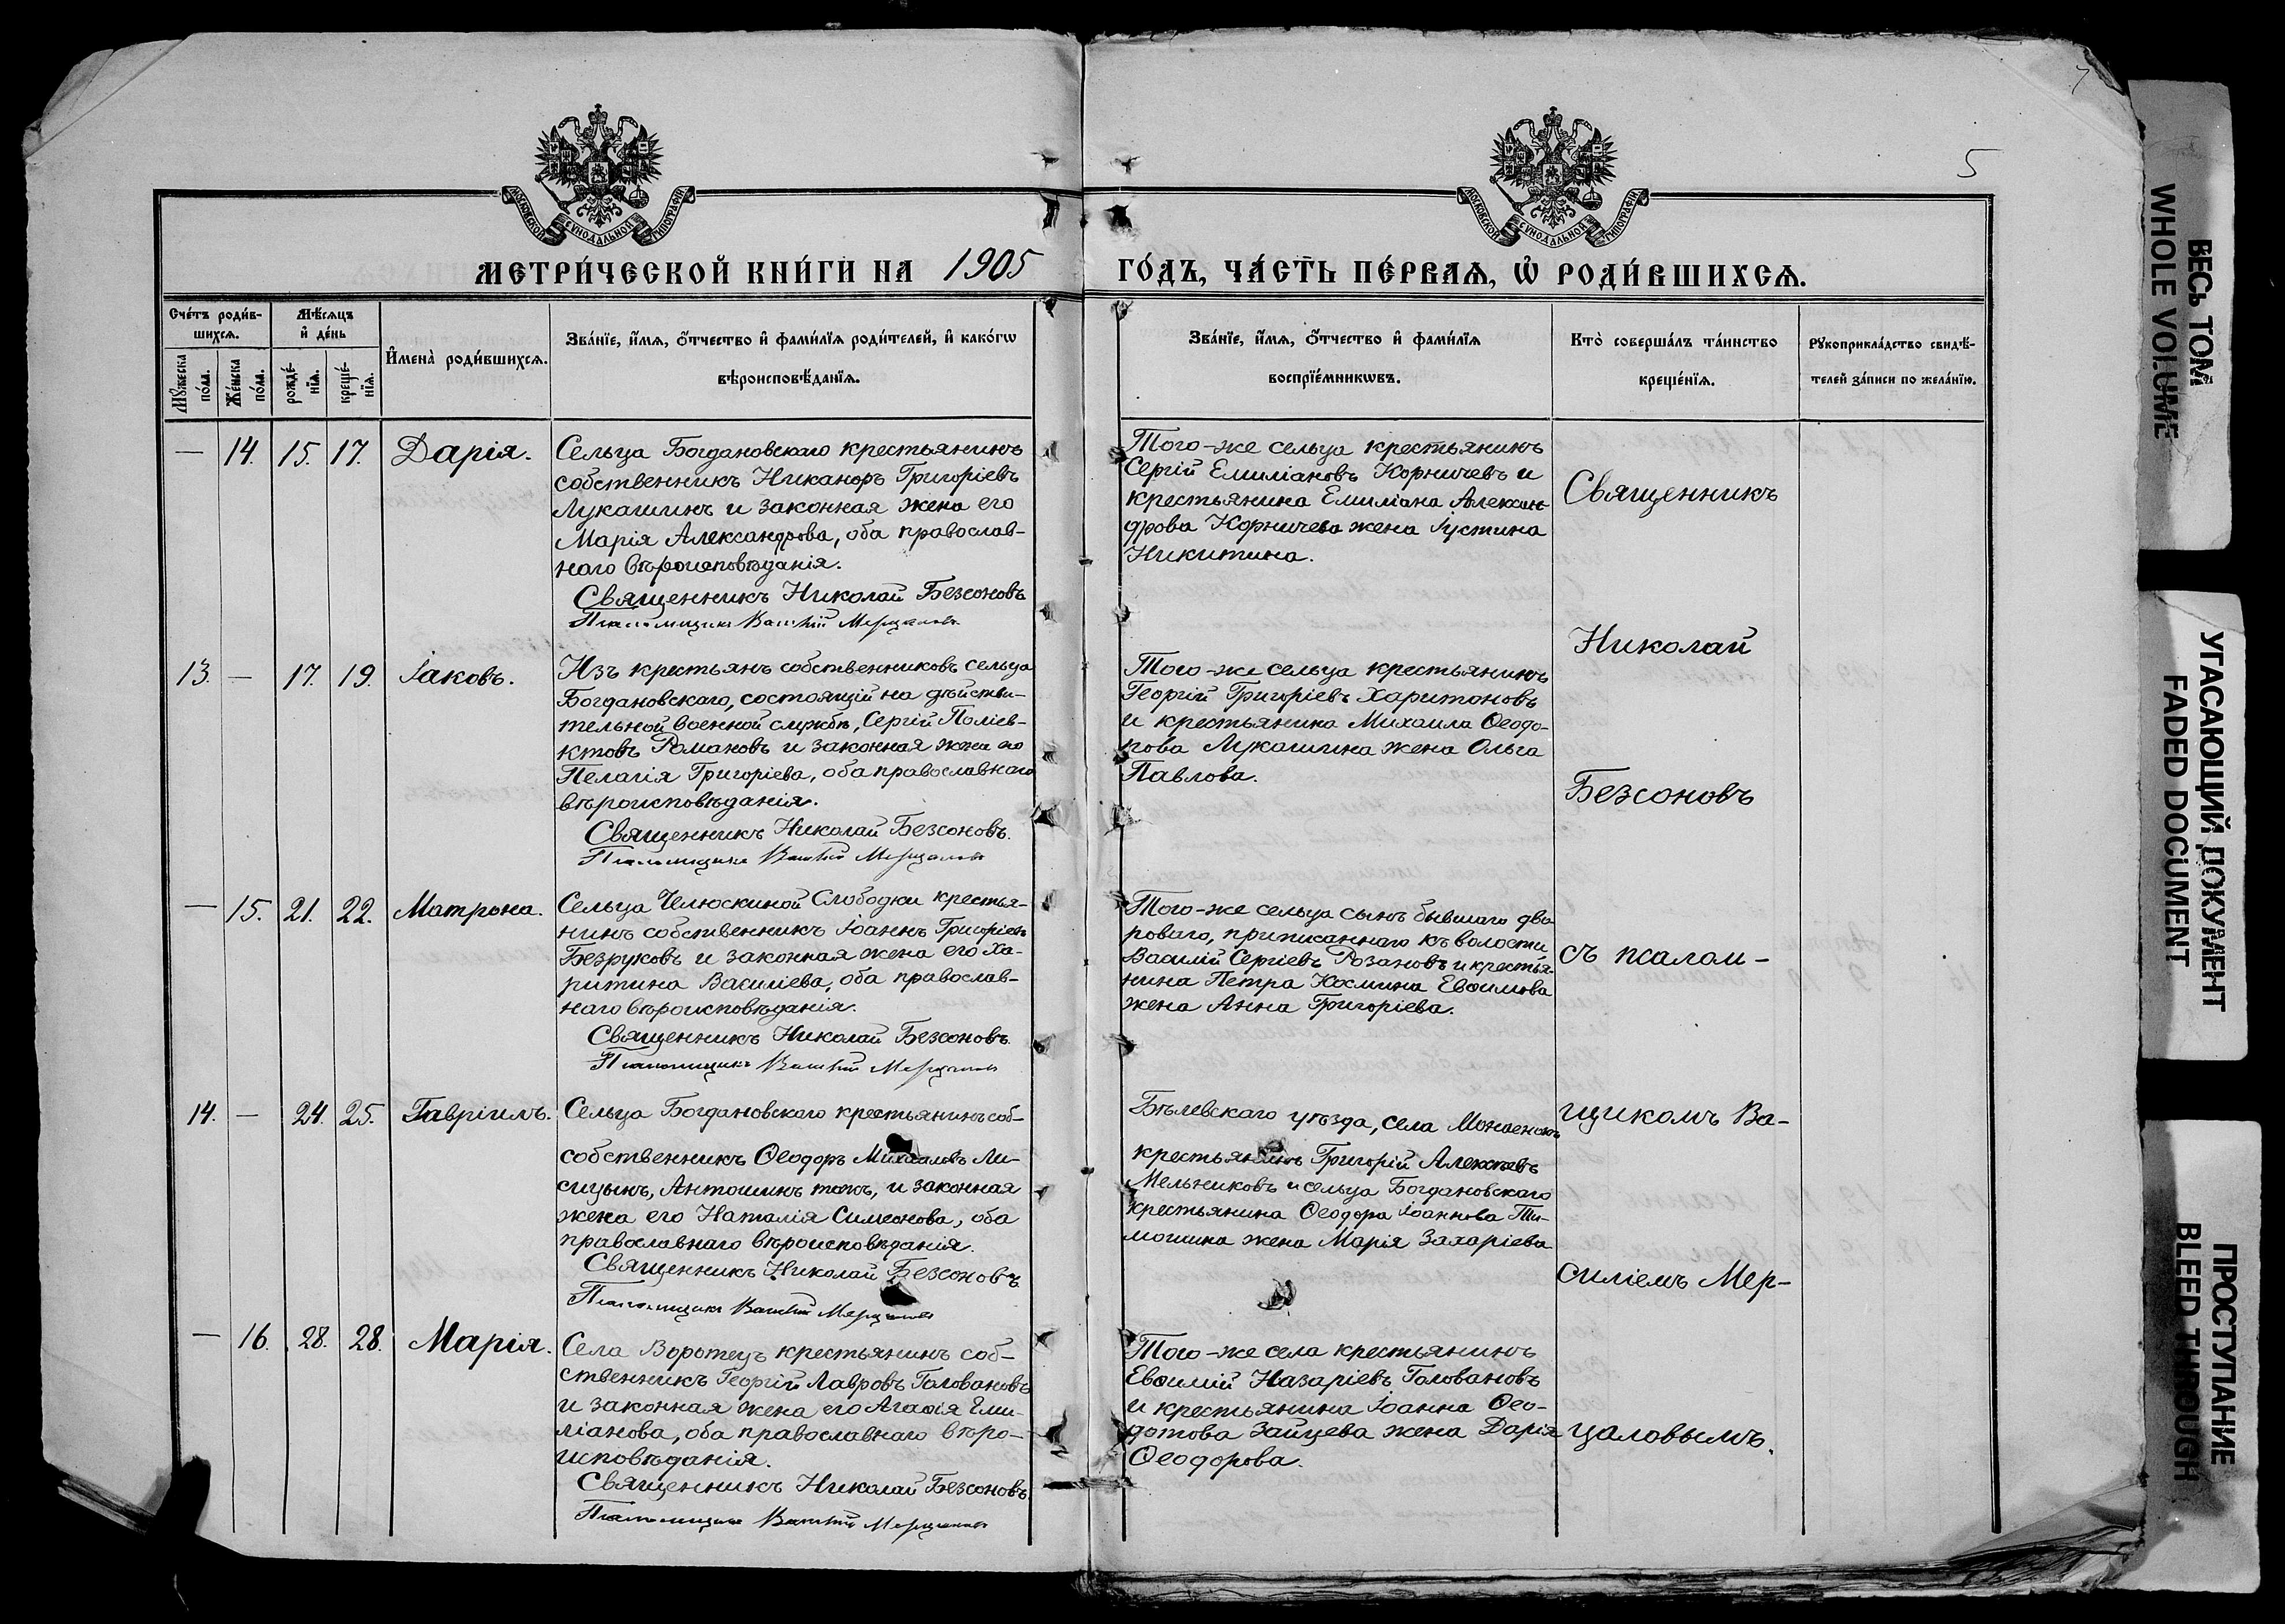 7
5
МОСКОВСКОЙ СѴНОДАЛЬНОЙ ТИПОГРАФІИ
МОСКОВСКОЙ СѴНОДАЛЬНОЙ ТИПОГРАФІИ
МЕТРИ́ЧЕСКОЙ КНИ́ГИ НА 1905
ГО́ДЪ, ЧА́СТЬ ПЕ́РВАѦ, Ѡ҆ РОДИ́ВШИХСѦ.
Сче́тъ роди́в-
шихсѧ.
Мꙋ́жеска по́ла.
Же́нска по́ла.
Мѣ́сѧцъ
и҆ де́нь
рожде́-
нїѧ.
креще́-
нїѧ.
И҆мена̀ роди́вшихсѧ.
Зва́нїе, и҆́мѧ, о҆́тчество и҆ фами́лїѧ роди́телей, и҆ како́гѡ
вѣроисповѣ́данїѧ.
Зва́нїе, и҆́мѧ, о҆́тчество и҆ фами́лїѧ
воспрїе́мникѡвъ.
Кто̀ соверша́лъ та́инство
креще́нїѧ.
Рꙋкоприкла́дство свидѣ́-
телей за́писи по жела́нїю.
— 14. 15. 17. Дарія.
Сельца Богдановскаго крестьянинъ
собственникъ Никаноръ Григоріевъ
Лукашинъ и законная жена его
Марія Александрова, оба православ-
наго вѣроисповѣданія.
Священникъ Николай Безсоновъ
Псаломщикъ Василій Мерцаловъ
Того-же сельца крестьянинъ
Сергій Емиліановъ Корничевъ и
крестьянина Емиліана Алексан-
дрова Корничева жена Іустина
Никитина.
Священникъ
Николай
13. — 17. 19. Іаковъ.
Изъ крестьянъ собственниковъ сельца
Богдановскаго, состоящій на дѣйстви-
тельной военной службѣ, Сергій Поліев-
ктовъ Романовъ и законная жена его
Пелагія Григоріева, оба православнаго
вѣроисповѣданія.
Священникъ Николай Безсоновъ.
Псаломщикъ Василій Мерцаловъ
Того-же сельца крестьянинъ
Георгій Григоріевъ Харитоновъ
и крестьянина Михаила Ѳеодо-
рова Лукашина жена Ольга
Павлова.
Безсоновъ
— 15. 21. 22. Матрона.
Сельца Челюскиной Слободки крестья-
нинъ собственникъ Іоаннъ Григоріевъ
Безруковъ и законная жена его Ха-
ритина Василіева, оба православ-
наго вѣроисповѣданія.
Священникъ Николай Безсоновъ.
Псаломщикъ Василій Мерцаловъ
Того-же сельца сынъ бывшаго дво
роваго, приписаннаго къ волости
Василій Сергіевъ Розановъ и крестья-
нина Петра Косьмина Евѳимова
жена Анна Григоріева.
съ псалом-
14. — 24. 25. Гавріилъ.
Сельца Богдановскаго крестьянинъ соб-
собственникъ Ѳеодоръ Михаиловъ Ли-
сицынъ, Антошинъ тожъ, и законная
жена его Наталія Симеонова, оба
православнаго вѣроисповѣданія.
Священникъ Николай Безсоновъ
Псаломщикъ Василій Мерцаловъ
Бѣлевскаго уѣзда, села
крестьянинъ Григорій Алексѣевъ
Мельниковъ и сельца Богдановскаго
крестьянина Ѳеодора Іоаннова Ти-
мошина жена Марія Захаріева
щикомъ Ва-
силіемъ Мер-
— 16. 28. 28. Марія.
Села Воротецъ крестьянинъ соб-
ственникъ Георгій Лавровъ Головановъ
и законная жена его Агаѳія Еми-
ліанова, оба православнаго вѣро-
исповѣданія.
Священникъ Николай Безсоновъ.
Псаломщикъ Василій Мерцаловъ
Того-же села крестьянинъ
Евѳимій Назаріевъ Головановъ
и крестьянина Іоанна Ѳео-
дотова Зайцева жена Дарія
Ѳеодорова.
цаловымъ.
ВЕСЬ ТОМ
WHOLE VOLUME
УГАСАЮЩИЙ ДОКУМЕНТ
FADED DOCUMENT
ПРОСТУПАНИЕ
BLEED THROUGH